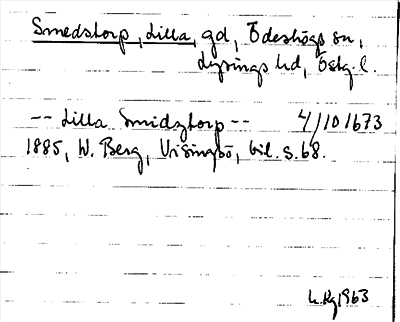 Smedstorp, Lilla, gd, Ödeshögs sn,
Lysings hd, Östg. l.
-- Lilla Smidztorp -- 4/10 1673
1885, W. Berg, Visingsö, bil. s. 68.
1963